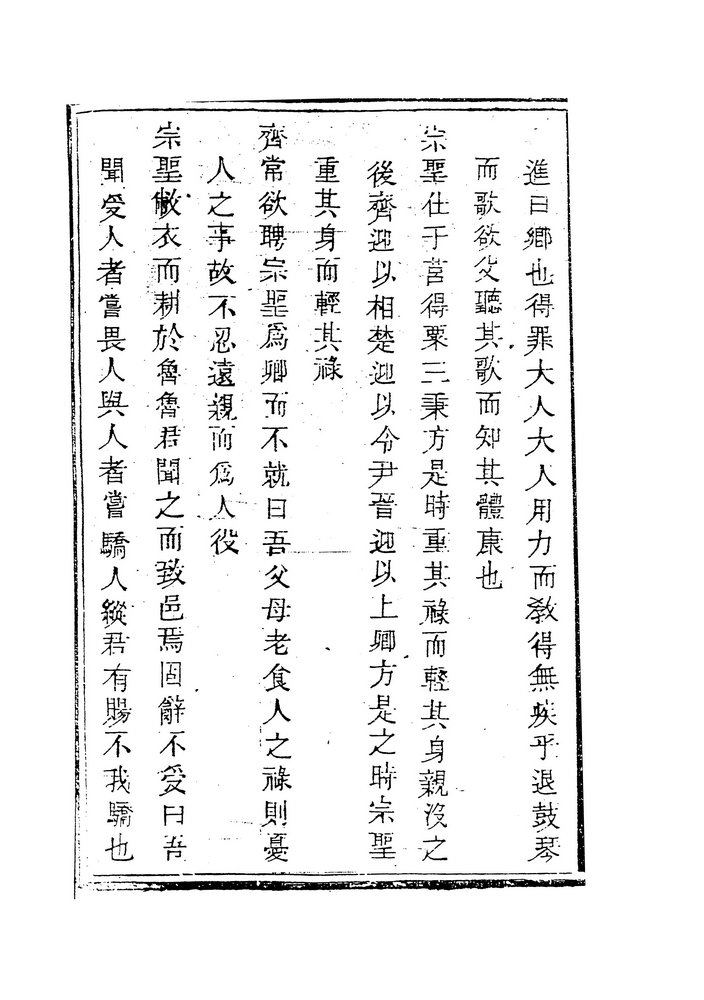 進曰鄉也得罪大人大人用力而教得無疾乎退鼓琴
而歌欲父聽其歌而知其體康也
宗聖仕于莒得粟三秉方是時重其祿而輕其身親沒之
後齊迎以相楚迎以令尹晉迎以上卿方是之時宗聖
重其身而輕其祿
齊常欲聘宗聖爲卿而不就曰吾父母老食人之祿則憂
人之事故不忍遠親而爲人役
宗聖敝衣而耕於魯魯君聞之而致邑焉固辭不受曰吾
聞受人者嘗畏人與人者嘗驕人縱君有賜不我驕也